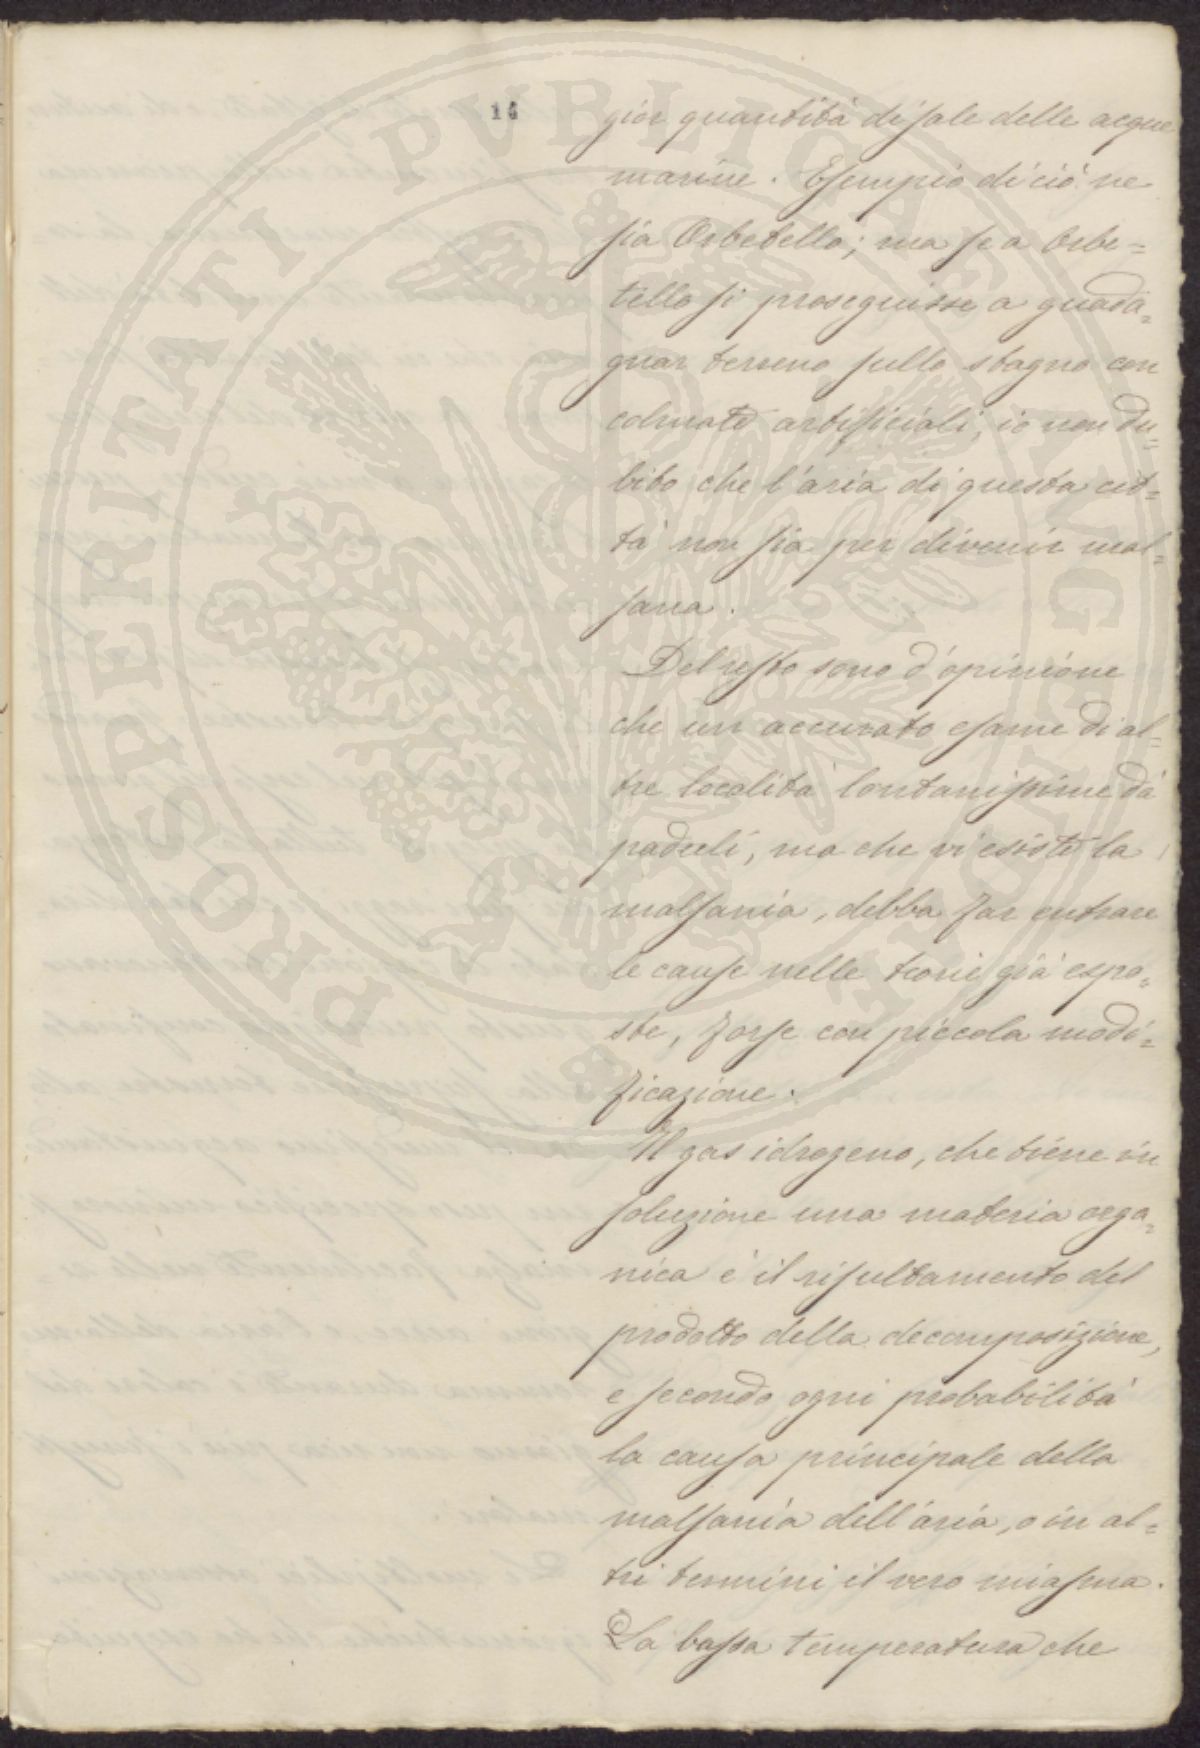 14
gior quantità di sale delle acque
marine. Esempio di ciò ne
sia Orbetello; ma se a Orbe=
tello si proseguisse a guada=
gnar terreno sullo stagno con
colmate artificiali, io non du=
bito che l'aria di questa cit=
tà non sia per divenir mal=
sana.
Del resto sono d'opinione
che un accurato esame di al=
tre località lontanissime da
paduli, ma che vi esiste la
malsania, debba far entrare
le cause nelle teorie già espo=
ste, forse con piccola modi=
ficazione.
Il gas idrogeno, che tiene in
soluzione una materia orga=
nica è il risultamento del
prodotto della decomposizione,
e secondo ogni probabilità
la causa principale della
malsania dell'aria, o in al=
tri termini il vero miasma.
La bassa temperatura che
PROSPERITATI PVBLICAE AVGENDAE